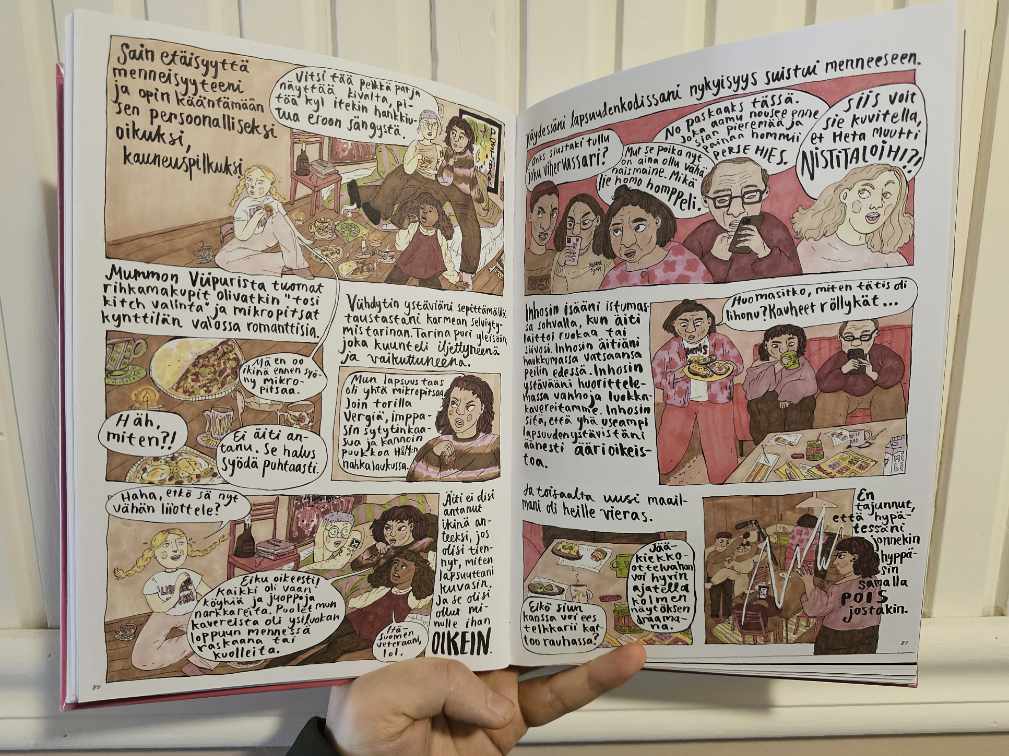 Sain etäisyyttä
menneisyyteeni
ja opin kääntämään
sen persoonalliseksi
oikuksi,
kauneuspilkuksi.
Vitsi tää pelkkä patja
näyttää kivalta, pi-
tää kyl itekin hankkiu-
tua eroon sängystä.
Mummon Viipurista tuomat
rihkamakupit olivatkin "tosi
kitch valinta" ja mikropitsat
kynttilän valossa romanttisia.
Mä en oo
ikinä ennen syö-
ny mikro-
pitsaa.
Häh,
miten?!
Ei äiti an-
tanu. Se halus
syödä puhtaasti.
Viihdytin ystäviäni sepittämällä
taustastani karmean selviyty-
mistarinan. Tarina puri yleisöön,
joka kuunteli iljettyneenä
ja vaikuttuneena.
Mun lapsuus taas
oli yhtä mikropitsaa.
Join torilla
Vergiä, imppa-
sin sytytinkaa-
sua ja kannoin
puukkoa H&M:n
nahkalaukussa.
Haha, etkö sä nyt
vähän liiottele?
Eiku oikeesti!
Kaikki oli vaan
köyhiä ja juoppoja
narkkareita. Puolet mun
kavereista oli ysiluokan
loppuun mennessä
raskaana tai
kuolleita.
Itä-
suomen
veteraani,
lol.
Äiti ei olisi
antanut
ikinä an-
teeksi, jos
olisi tien-
nyt, miten
lapsuuttani
kuvasin.
Ja se olisi
ollut mi-
nulle ihan
OIKEIN.
Käydessäni lapsuudenkodissani nykyisyys suistui menneeseen.
Onks siustaki tullu
joku vihervassari?
Mut se poika nyt
on aina ollu vähä
naismaine. Mikä
lie homo homppeli.
No paskaaks tässä.
Joka aamu nousee enne
sian pieremää ja
painaa hommii
PERSE HIES.
Siis voit
sie kuvitella,
et Heta muutti
NISTITALOIHI?!
Inhosin isääni istumas-
sa sohvalla, kun äiti
laittoi ruokaa tai
siivosi. Inhosin äitiäni
haukkumassa vatsaansa
peilin edessä. Inhosin
ystävääni huorittele-
massa vanhoja luokka-
kavereitamme. Inhosin
sitä, että yhä useampi
lapsuudenystävistäni
äänesti äärioikeis-
toa.
Huomasitko, miten tätis oli
lihonu? Kauheet röllykät...
Ja toisaalta uusi maail-
mani oli heille vieras.
Jää-
kiekko-
ottelu
voi hyvin
ajatella
kolmen
näytöksen
draama-
na.
Eikö siun
kanssa voi ees
telkkarii kat-
too rauhassa?
En
tajunnut,
että hypä-
tessäni
jonnekin
hyppä-
sin
samalla
POIS
jostakin.